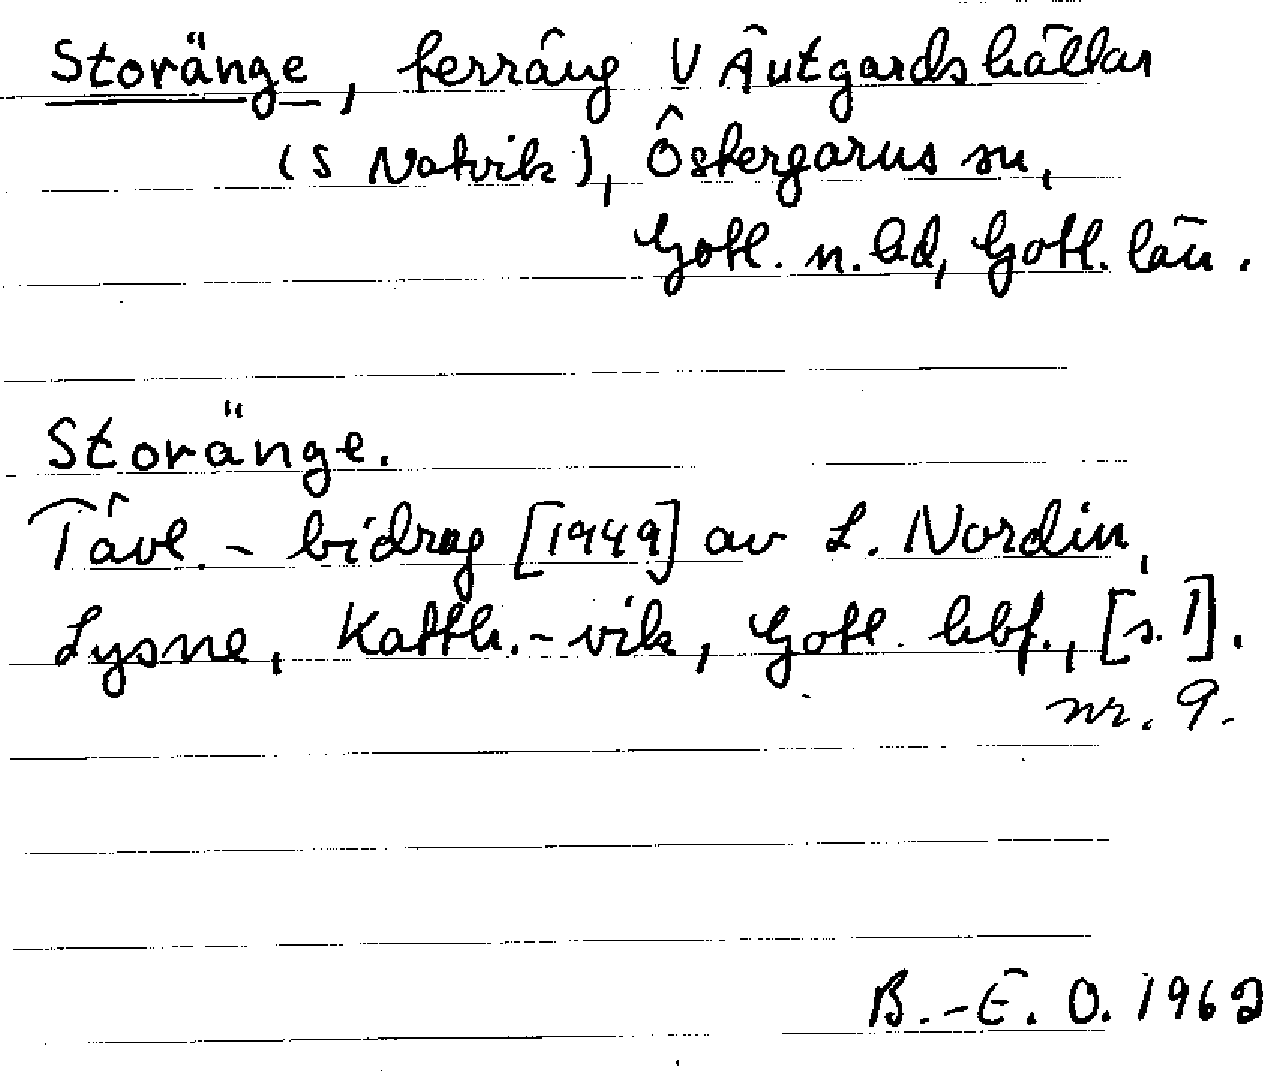 Storänge, terräng V Äutgardshällar
(S Natvik), Östergarns sn,
Gotl. n. hd, Gotl. län.
Storänge.
Tävl.-bidrag [1949] av L. Nordin,
Lysne, Katth.-vik, Gotl. hbf., [s. 1].
nr. 9.
B.-E. O. 1962